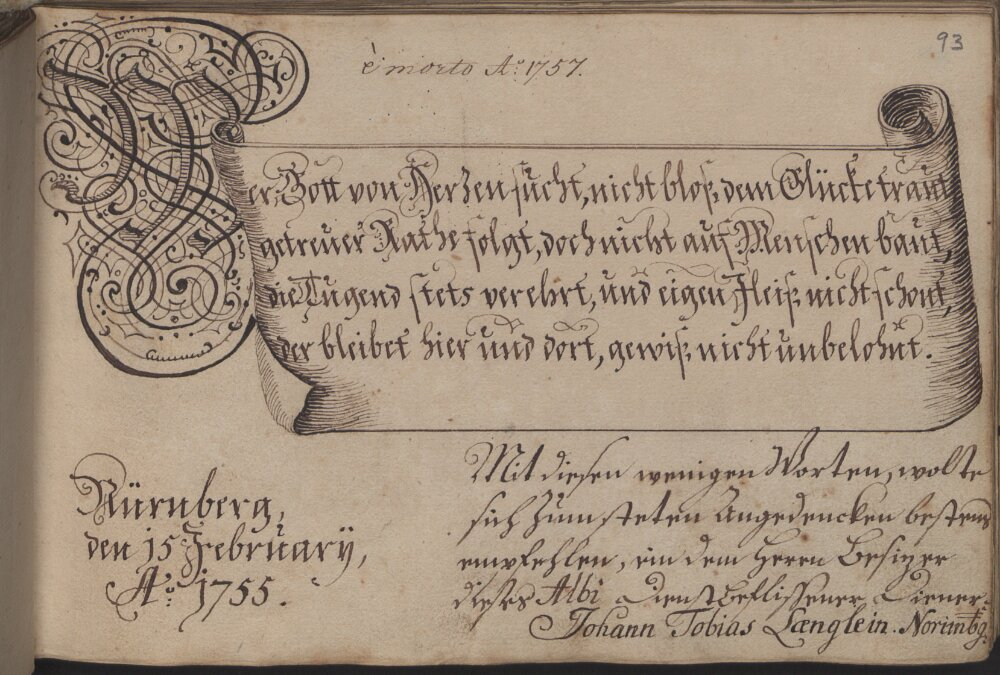 93
è morto Aº 1757.
Wer Gott von Herzen sucht, nicht bloß dem Glücke traut
getreuer Rathe folgt, doch nicht auf Menschen baut,
die Tugend stets verehrt, und eigen Fleiß nicht schont,
der bleibet hier und dort, gewiß nicht unbelohnt.
Nürnberg,
den 15 February,
Aº 1755.
Mit diesen wenigen Worten, wolte
sich zum steten Angedencken bestens
empfehlen, ein dem Herrn Besizer
dieses Albi dienstbeflissener Diener
Johann Tobias Længlein. Norimbg.